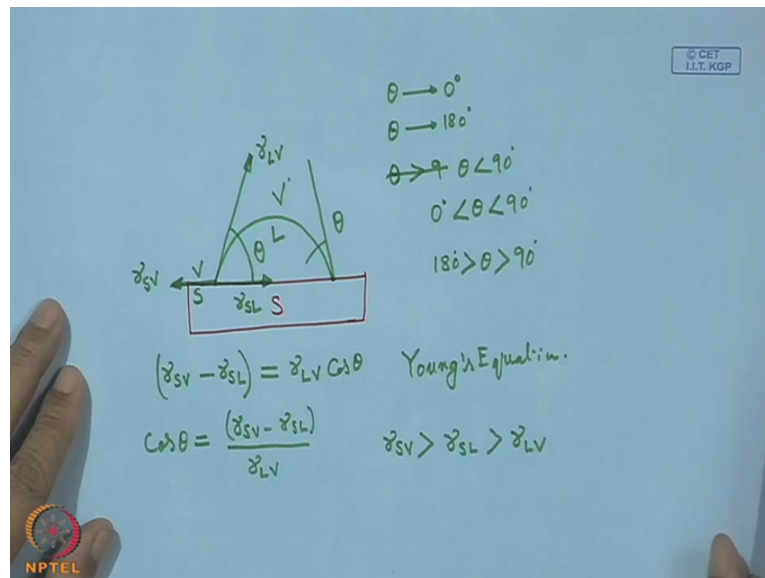 © CET
I.I.T. KGP
θ → 0°
θ → 180°
θ > 9 θ < 90°
0° < θ < 90°
180° > θ > 90°
γLV
V
L
θ
θ
γSV
V
S
γSL
S
(γSV - γSL) = γLV Cosθ Young's Equation.
Cosθ = (γSV - γSL) / γLV
γSV > γSL > γLV
NPTEL